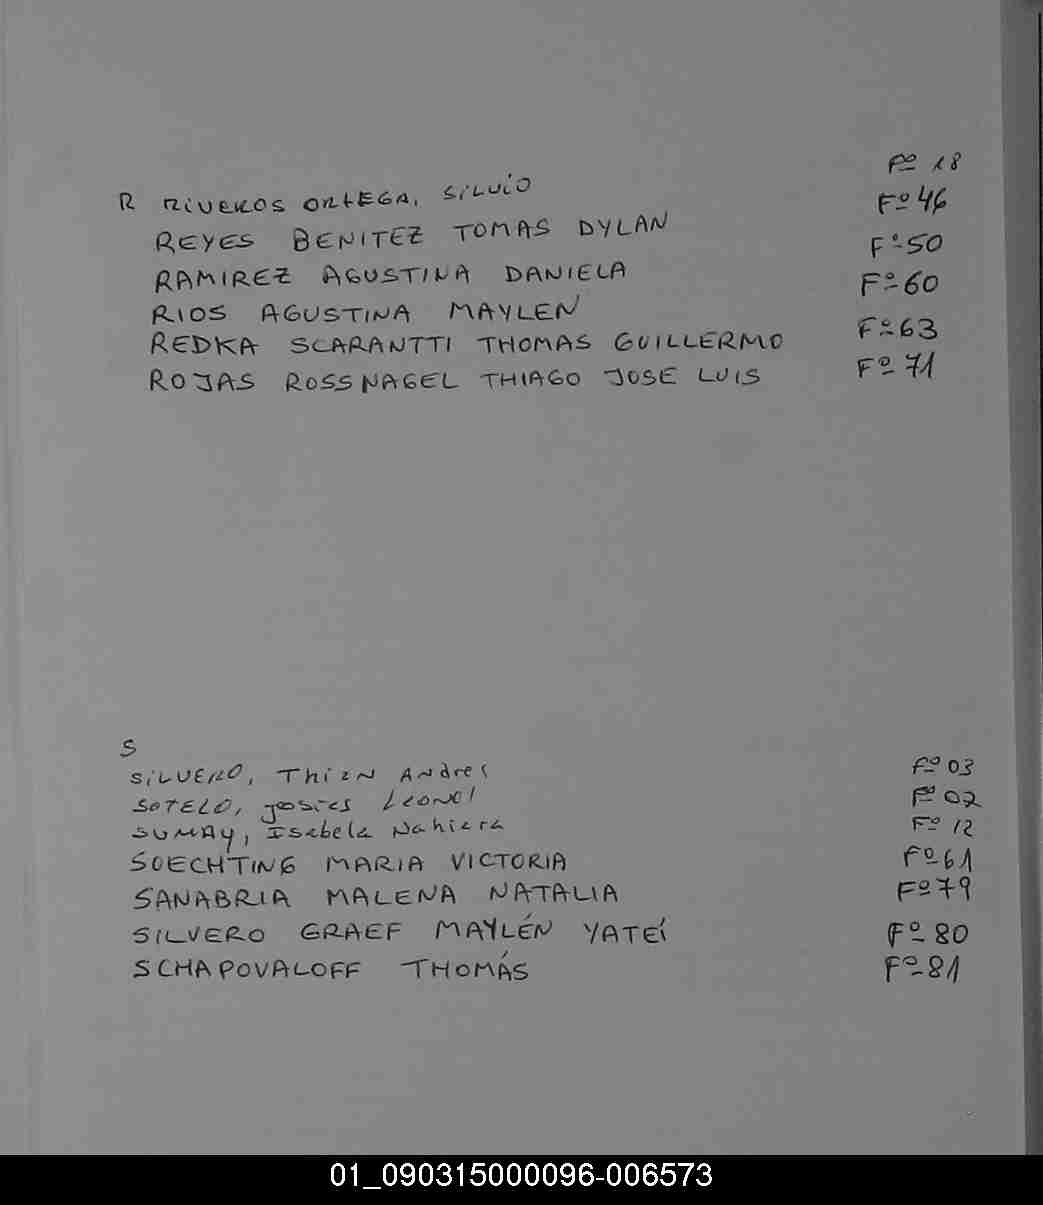 R RIVEROS ORTEGA, SILVIO Fº 18
REYES BENITEZ TOMAS DYLAN Fº 46
RAMIREZ AGUSTINA DANIELA Fº 50
RIOS AGUSTINA MAYLEN Fº 60
REDKA SCARANTTI THOMAS GUILLERMO Fº 63
ROJAS ROSSNAGEL THIAGO JOSE LUIS Fº 71
S
SILVERO, Thian Andres Fº 03
SOTELO, Leonel Fº 02
SUMAY, Isabela Nahiara Fº 12
SOECHTING MARIA VICTORIA Fº 61
SANABRIA MALENA NATALIA Fº 79
SILVERO GRAEF MAYLÉN YATEÍ Fº 80
SCHAPOVALOFF THOMÁS Fº 81
01_090315000096-006573